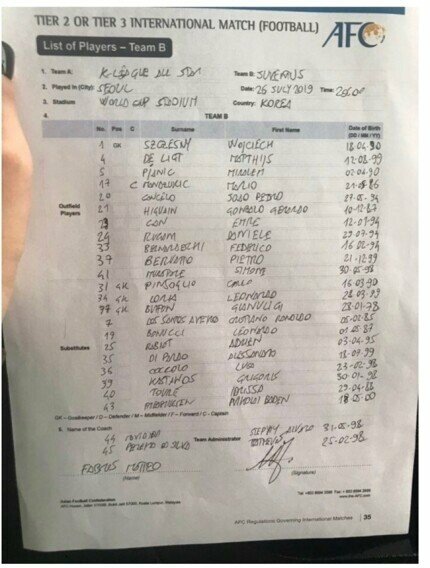 TIER 2 OR TIER 3 INTERNATIONAL MATCH (FOOTBALL)
AFC
List of Players – Team B
1. Team A: K-LEAGUE ALL STAR Team B: JUVENTUS
2. Played in (City): SEOUL Date: 26 JULY 2019 Time: 20:00
3. Stadium WORLD CUP STADIUM Country: KOREA
4. TEAM B
No. Pos C Surname First Name Date of Birth (DD / MM / YY)
1 GK SZCZESNY WOJCIECH 18.04.90
4 DE LIGT MATTHIJS 12.08.99
5 PJANIC MIRALEM 02.04.90
17 C MANDZUKIC MARIO 21.05.86
20 CANCELO JOAO PEDRO 27.05.94
Outfield Players
21 HIGUAIN GONZALO GERARDO 10.12.87
23 CAN EMRE 12.01.94
24 RUGANI DANIELE 29.07.94
33 BERNARDESCHI FEDERICO 16.02.94
37 BERUATTO PIETRO 21.12.99
41 MURATORE SIMONE 30.05.98
31 GK PINSOGLIO CARLO 16.03.90
34 GK LORIA LEONARDO 28.03.99
77 GK BUFFON GIANLUIGI 28.01.78
7 DOS SANTOS AVEIRO CRISTIANO RONALDO 05.02.85
19 BONUCCI LEONARDO 01.05.87
Substitutes 25 RABIOT ADRIEN 03.04.95
35 DI PARDO ALESSANDRO 18.07.99
36 COCCOLO LUCA 23.02.98
39 KASTANOS GRIGORIS 30.01.98
40 TOURE IDRISSA 29.04.98
43 BODEN 18.05.00
GK – Goalkeeper / D – Defender / M – Midfielder / F – Forward / C – Captain
5. Name of the Coach
44 31-05-98
45 PEREIRA DA SILVA Team Administrator MATHEUS 25-02-98
FABRIS MATTEO
(Name) (Signature)
Asian Football Confederation
AFC Regulations Governing International Matches | 35